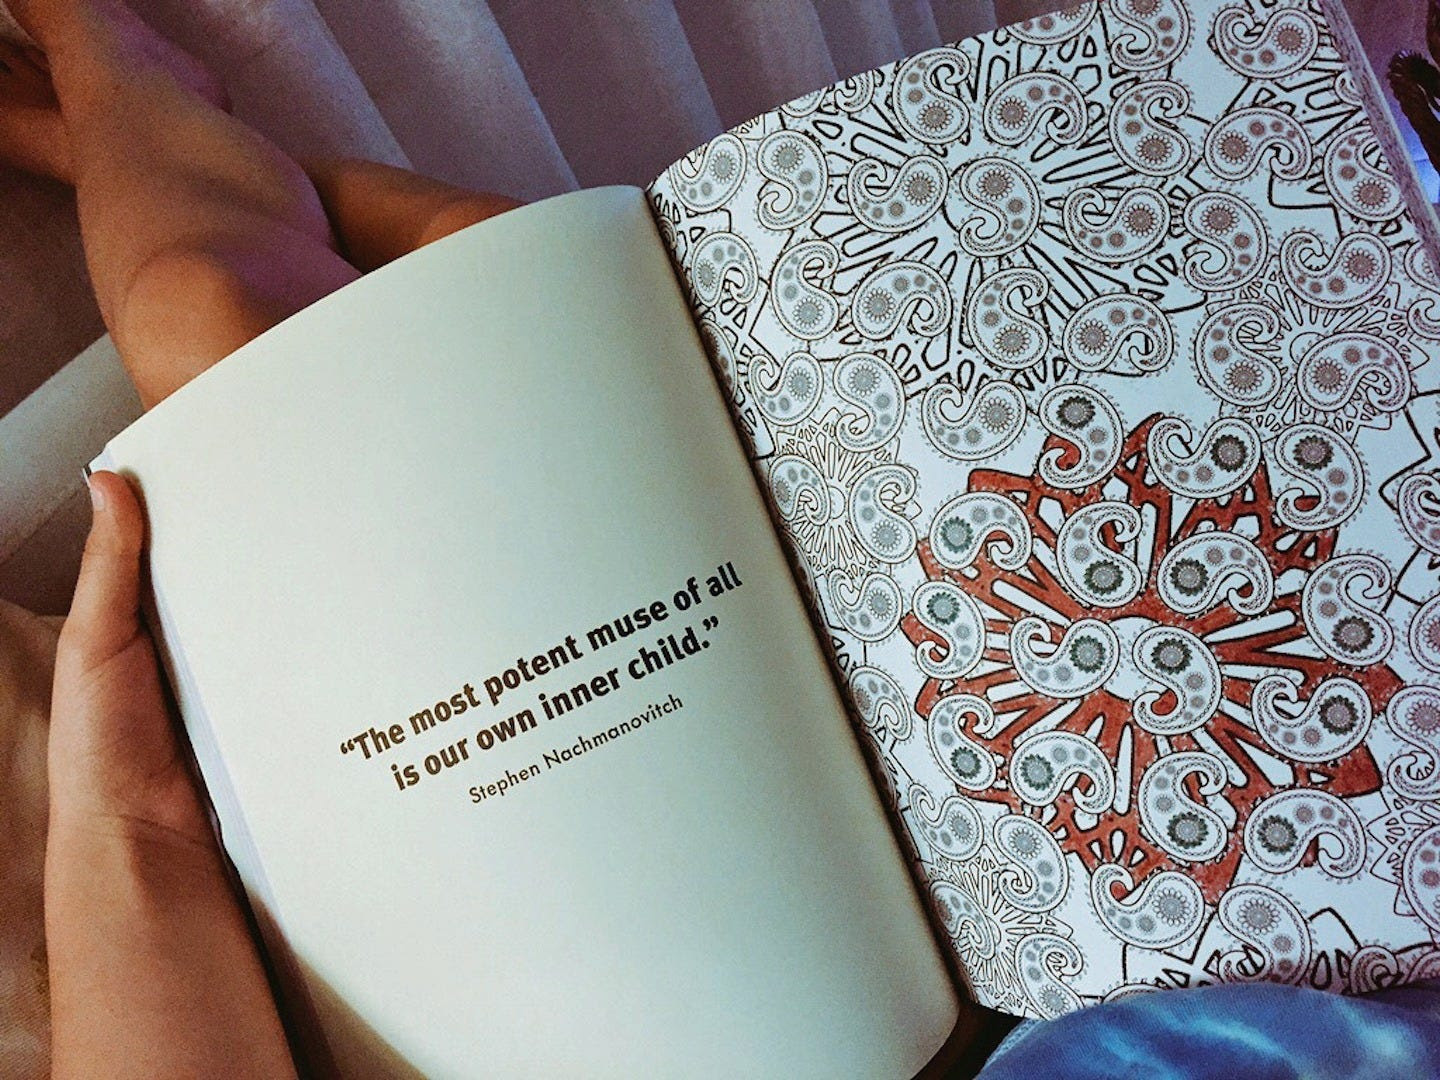 “The most potent muse of all
is our own inner child.”
Stephen Nachmanovitch